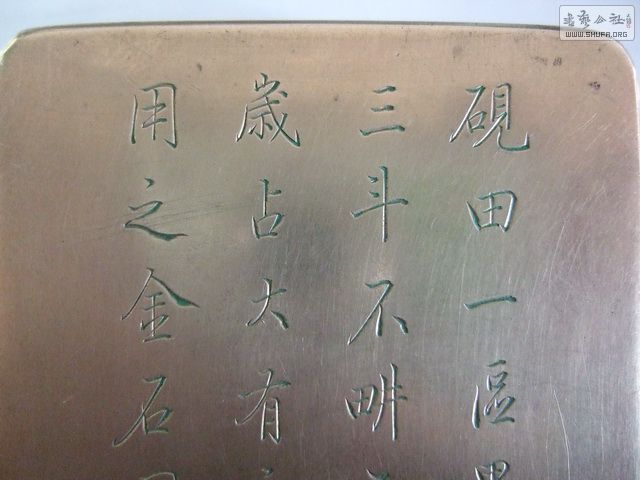 硯田一區
三斗不畊
歲占大有
用之金石
書法公社
WWW.SHUFA.ORG